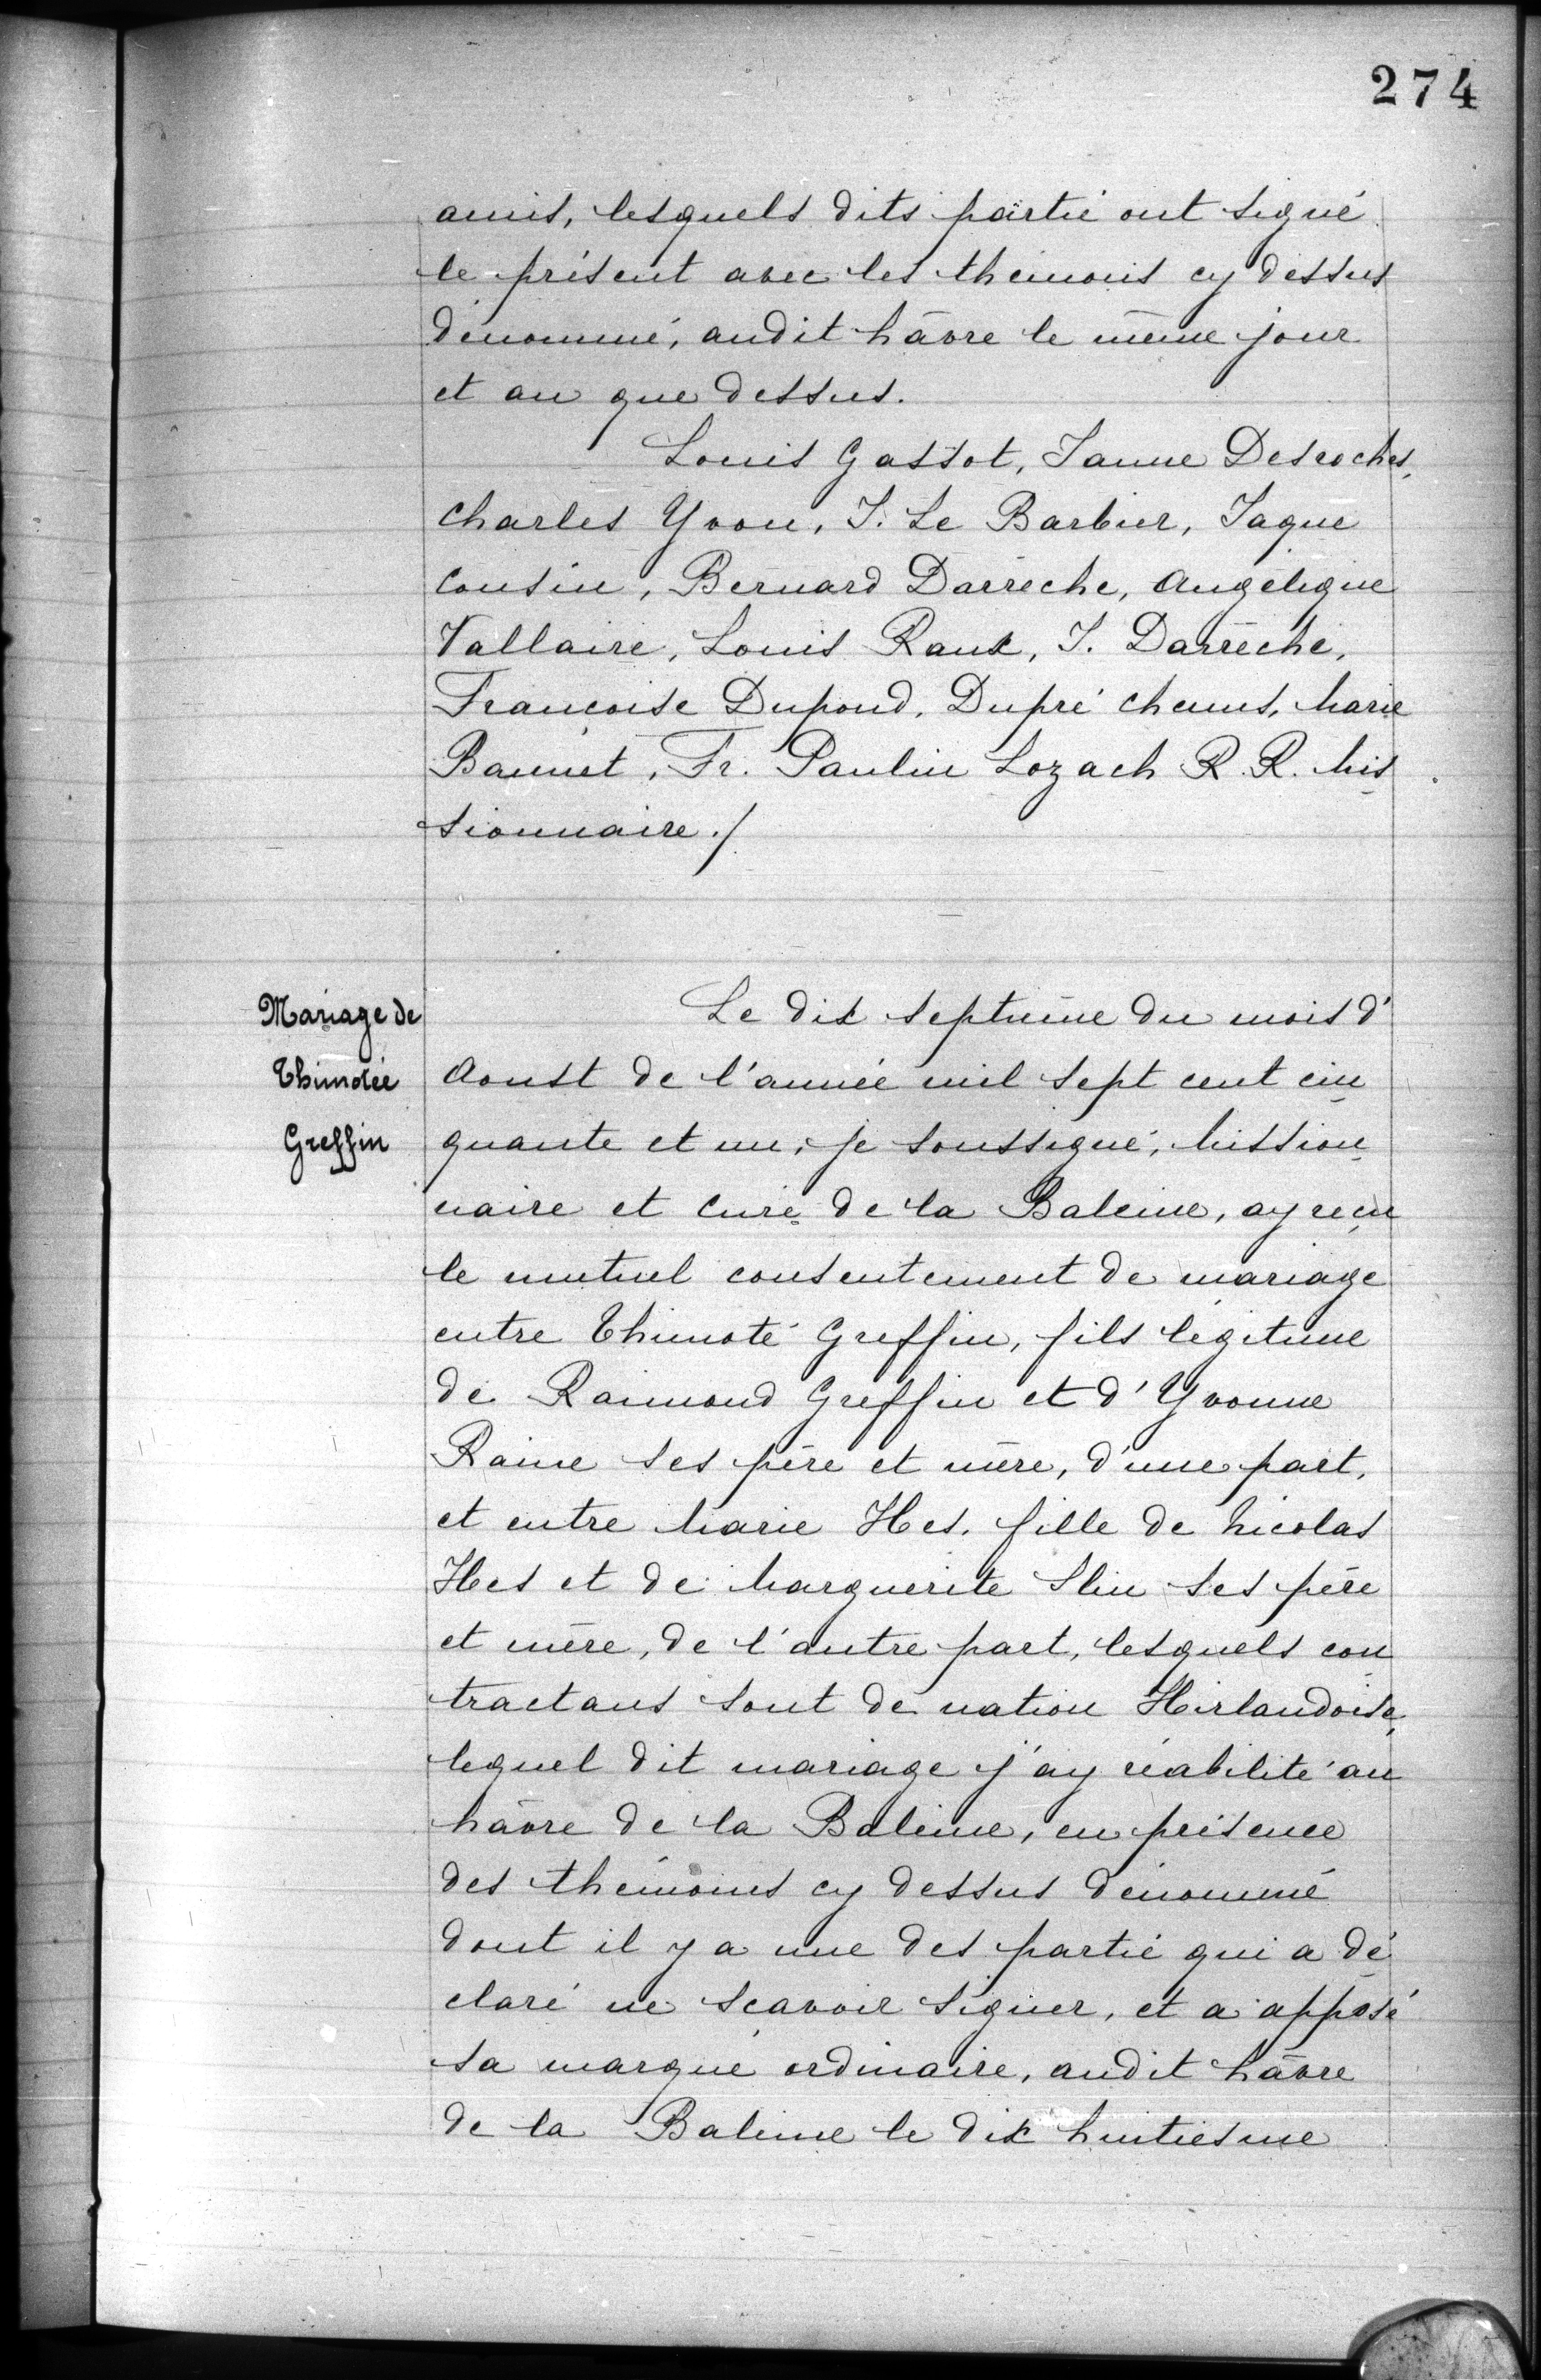 274
amis, lesquels dits partie ont signé
le présent avec les themoins cy dessus
dénommé, audit hâvre le même jour
et an que dessus.
Louis Gassot, Janne Desroches,
Charles Yvon, J. Le Barbier, Jaque
Cousin, Bernard Darrèche, Angélique
Vallaire, Louis Raux, J. Darrèche,
Françoise Dupond, Dupré Chenus, Marie
Baunet, Fr. Paulin Lozach R. R. Mis
sionnaire./
Mariage de
Thimotée
Greffin
Le dix septième du mois d'
Aoust de l'année mil sept cent cin
quante et un, je soussigné, Mission
naire et Curé de la Baleine, ay reçu
le mutuel consentement de mariage
entre Thimoté Greffin, fils légitime
de Raimond Greffin et d'Yvonne
Raine ses père et mère, d'une part,
et entre Marie Hes, fille de Nicolas
Hes et de Marguerite Slin ses père
et mère, de l'autre part, lesquels con
tractans sont de nation Hirlandoise,
lequel dit mariage j'ay réabilité au
hâvre de la Baleine, en présence
des thémoins cy dessus dénommé
dont il y a une des partie qui a dé
claré ne sçavoir signer, et a apposé
sa marque ordinaire, audit hâvre
de la Baleine le dix huitiesme